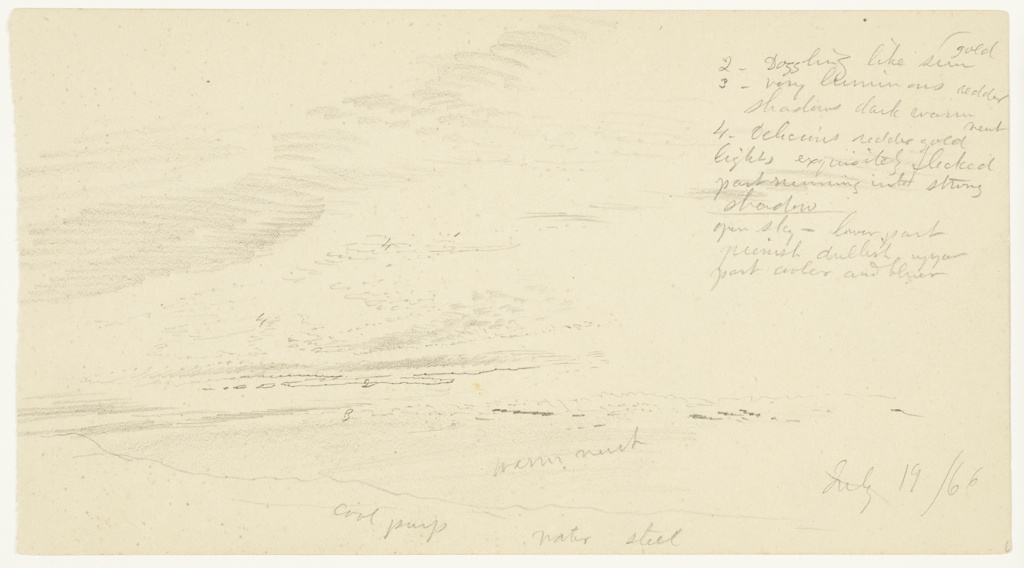 gold
2 - Dazzling like sun
3 - very luminous redder
shadows dark warm
neut
4 - Delicious redder gold
lights exquisitely flecked
part running into strong
shadow
open sky - lower part
dullish upper
part cooler and bluer
4
4
2
3
warm neut
July 19 /66
cool purp
water steel